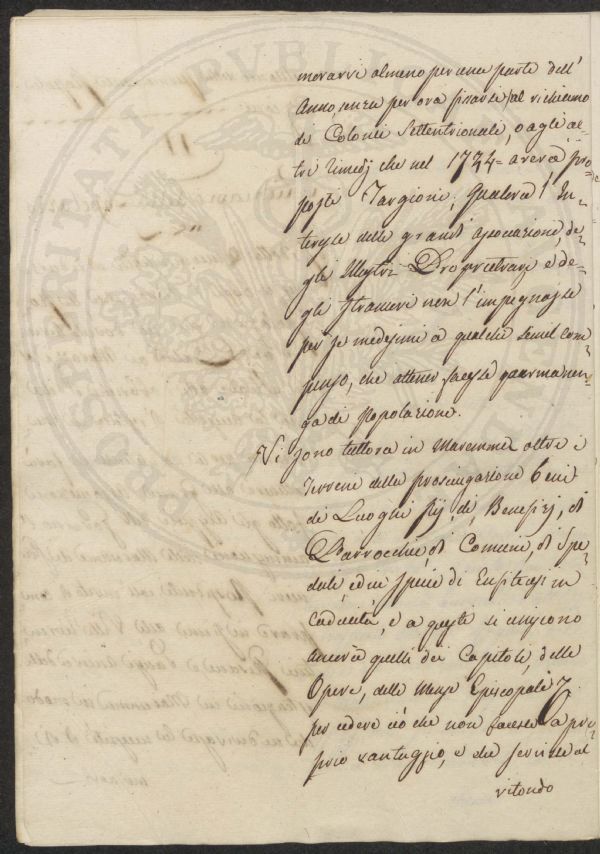 morarvi almeno per una parte dell'
Anno, senza per ora fissarsi al richiamo
di Colonie Settentrionali, o agli al-
tri rimedj che nel 1734 aveva pro-
posti Targioni, qualora l'In-
teresse delle grandi Associazione, de-
gli Illustri Proprietarj e de-
gli stranieri non l'impegnasse
per se medesimi a qualche simil com-
penso, che attener facesse permanen-
za di Popolazione.
Vi sono tuttora in Maremma oltre i
Terreni della prosciugazione Beni
di Luoghi Pij, di Benefizj, di
Parrocchie, di Comuni, di Spe-
dali, ed in specie di Enfiteusi in
Caducità, e a questi si uniscono
ancora quelli dei Capitoli, delle
Opere, delle Mense Episcopali
per cedere ciò che non facesse a pro-
prio vantaggio, e che servisse al
ritondo